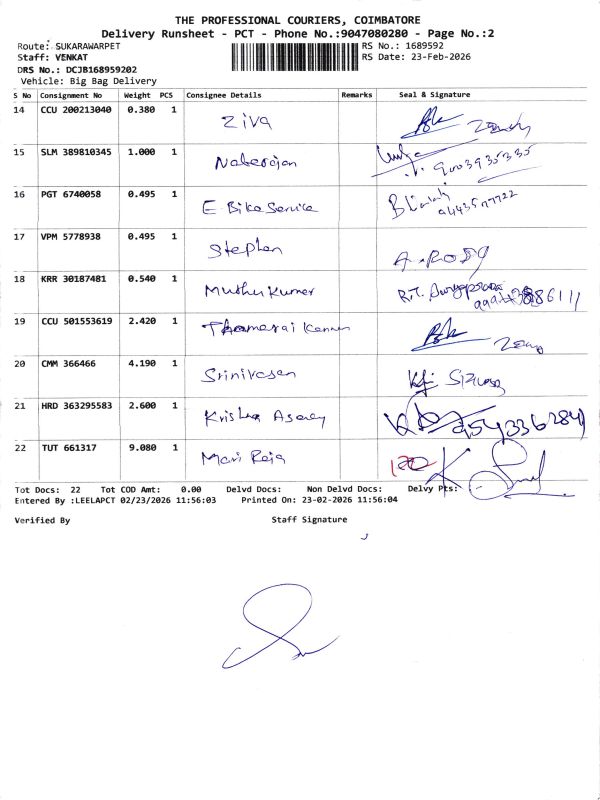 THE PROFESSIONAL COURIERS, COIMBATORE
Delivery Runsheet - PCT - Phone No.:9047080280 - Page No.:2
Route: SUKARAWARPET RS No.: 1689592
Staff: VENKAT RS Date: 23-Feb-2026
DRS No.: DCJB168959202
Vehicle: Big Bag Delivery
S No Consignment No Weight PCS Consignee Details Remarks Seal & Signature
14 CCU 200213040 0.380 1 Ziva
15 SLM 389810345 1.000 1 Naterajan 9003935335
16 PGT 6740058 0.495 1 E Bike Service
17 VPM 5778938 0.495 1 Stephen
18 KRR 30187481 0.540 1 Muthu Kumar
19 CCU 501553619 2.420 1 Thamerai Kannen
20 CMM 366466 4.190 1 Srinivasen
21 HRD 363295583 2.600 1 Krishna
22 TUT 661317 9.080 1 Mari Raja
Tot Docs: 22 Tot COD Amt: 0.00 Delvd Docs: Non Delvd Docs: Delvy Pts:
Entered By :LEELAPCT 02/23/2026 11:56:03 Printed On: 23-02-2026 11:56:04
Verified By Staff Signature